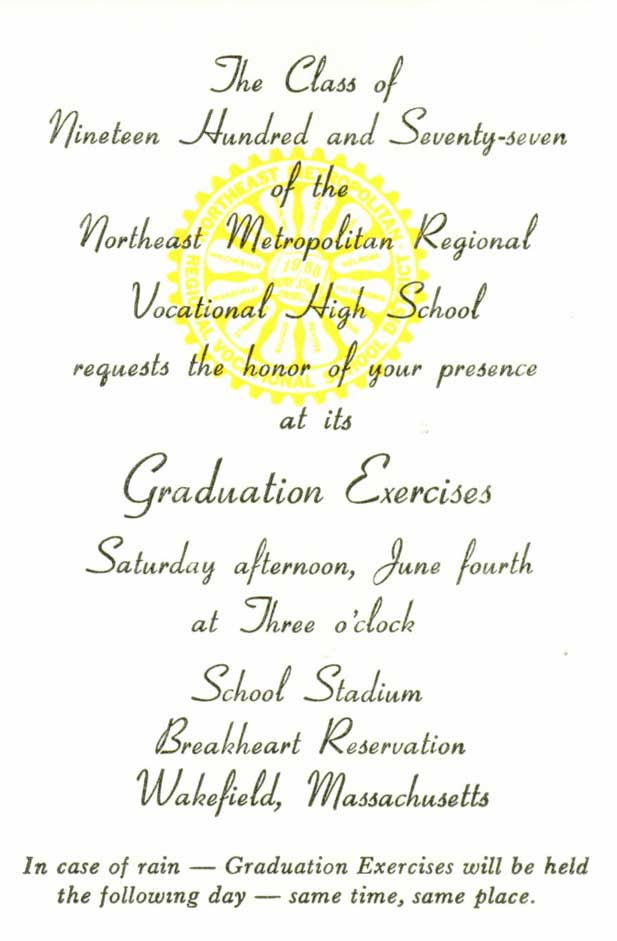 The Class of
Nineteen Hundred and Seventy-seven
of the
Northeast Metropolitan Regional
Vocational High School
requests the honor of your presence
at its
Graduation Exercises
Saturday afternoon, June fourth
at Three o'clock
School Stadium
Breakheart Reservation
Wakefield, Massachusetts
In case of rain — Graduation Exercises will be held
the following day — same time, same place.
NORTHEAST METROPOLITAN
REGIONAL VOCATIONAL SCHOOL DISTRICT
1968